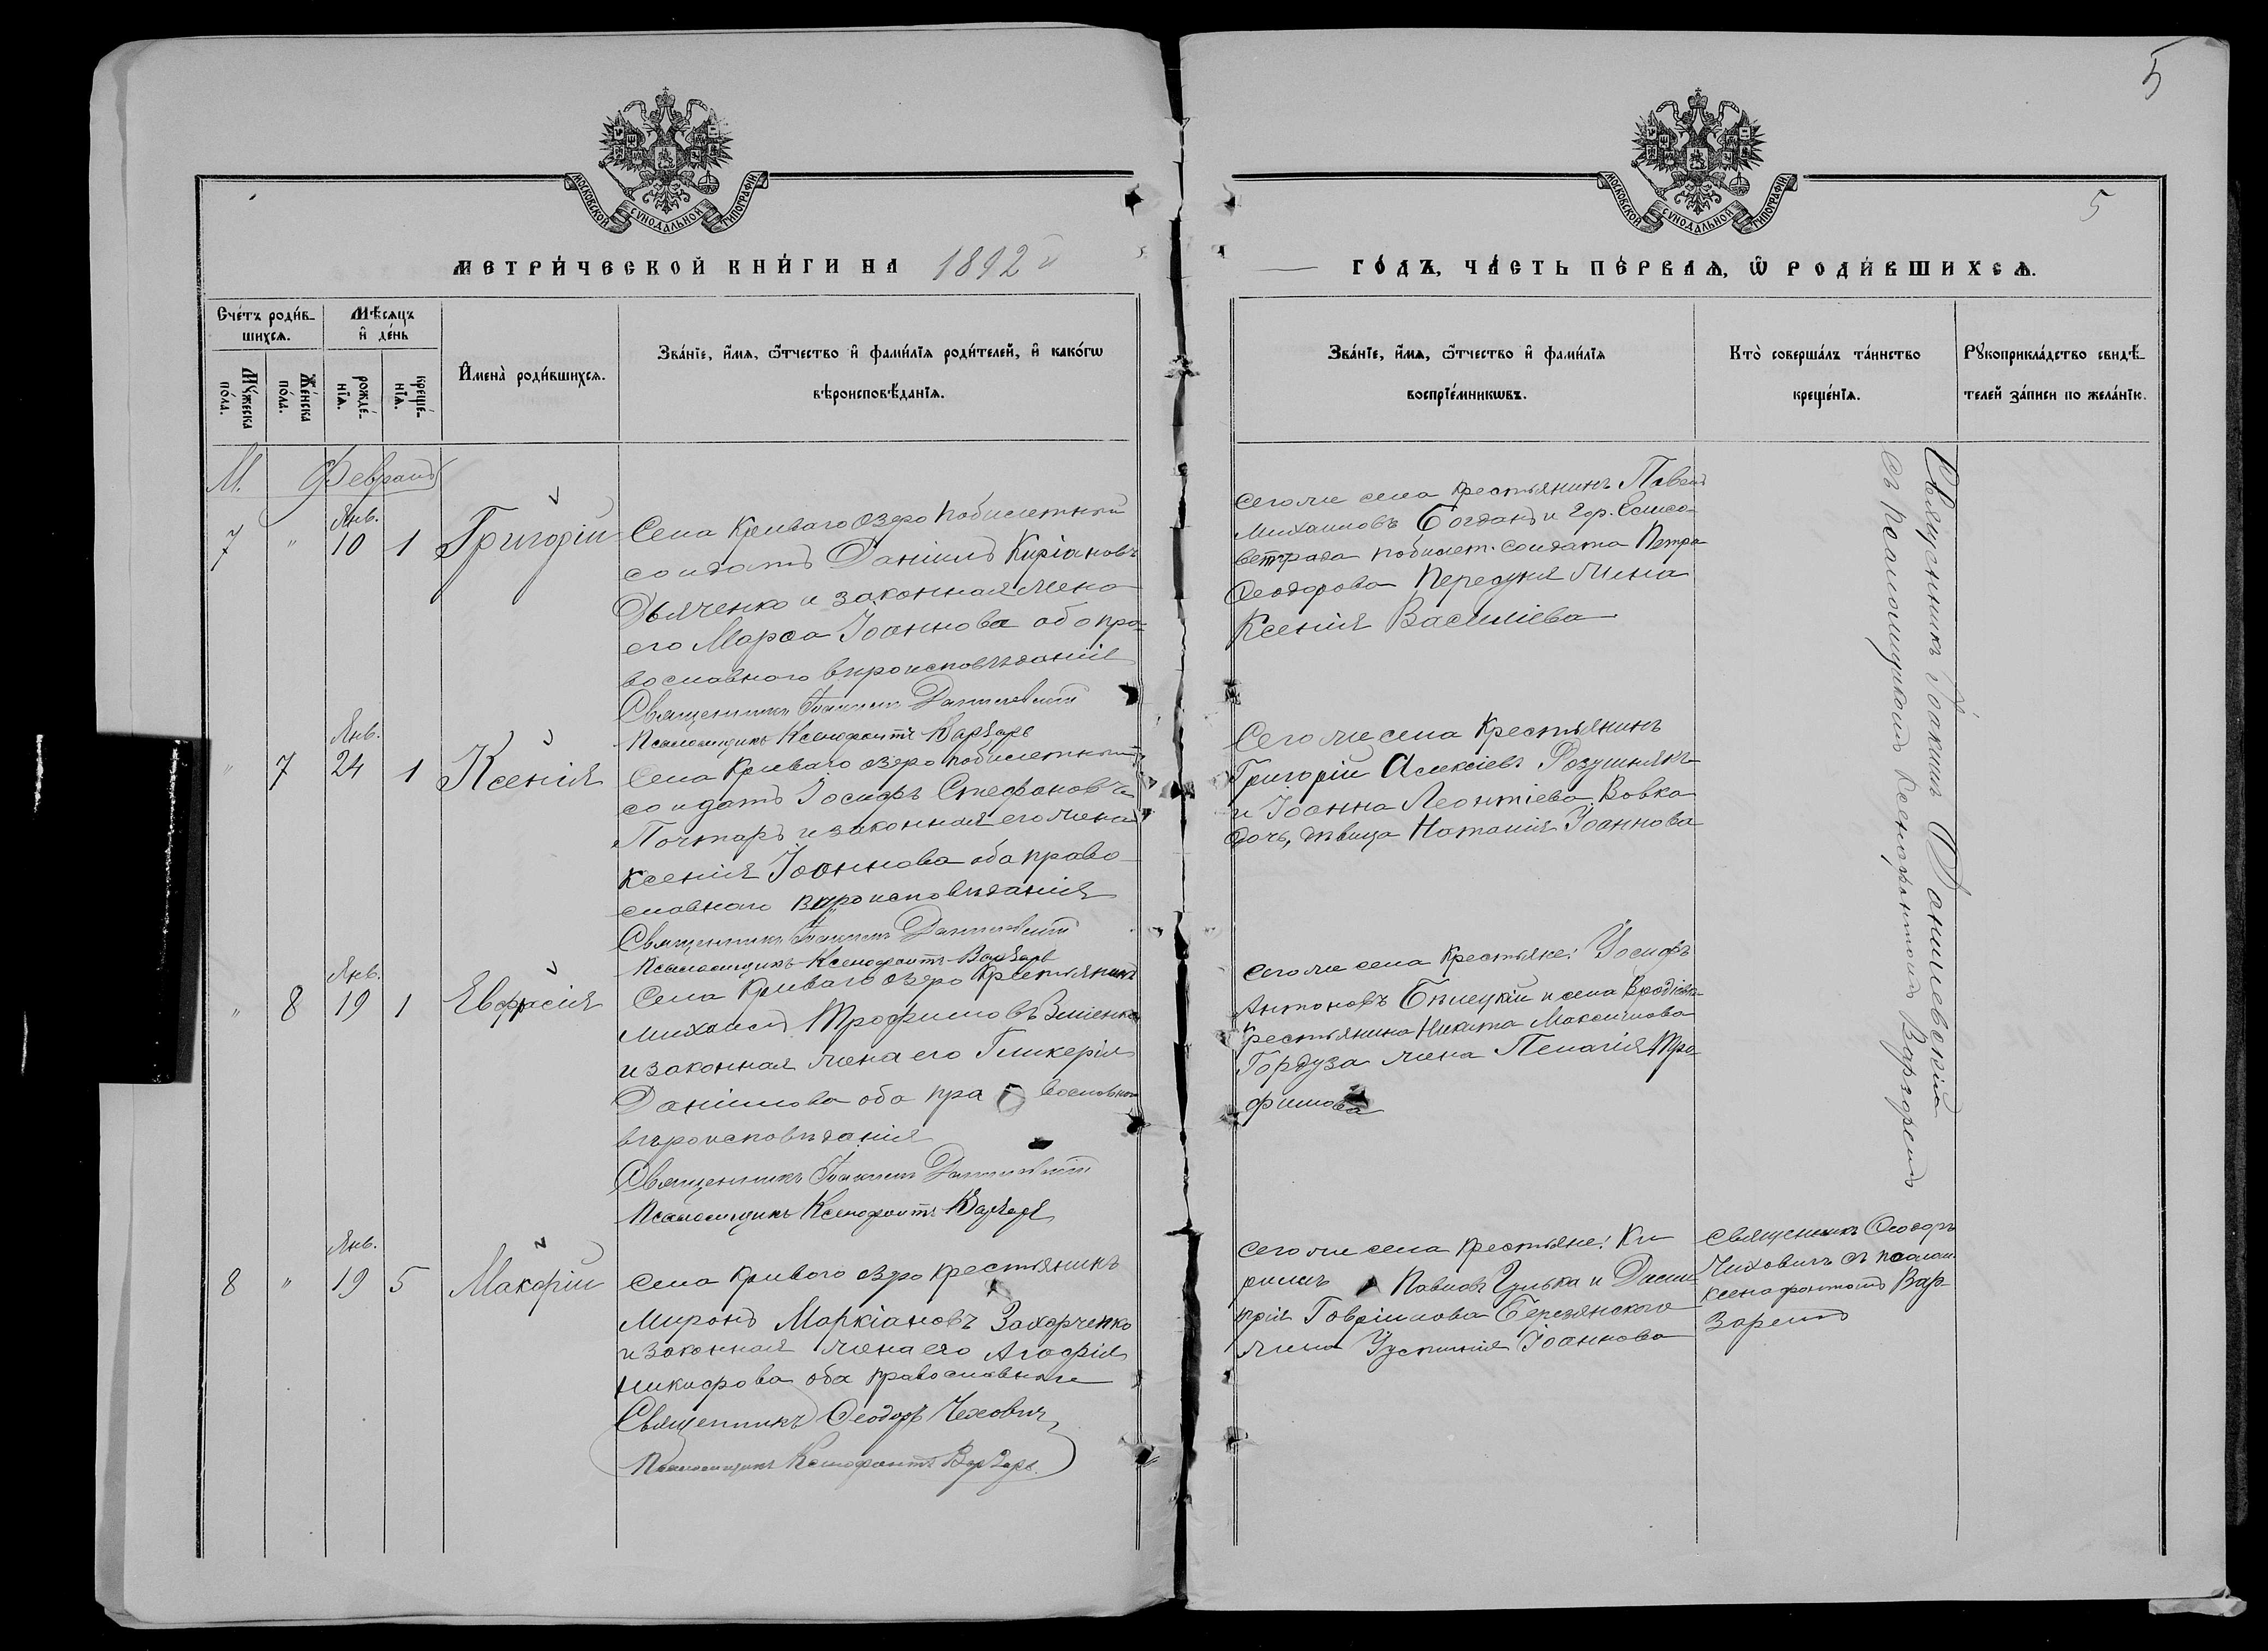 5
МОСКОВСКОЙ СѴНОДАЛЬНОЙ ТИПОГРАФІИ
МОСКОВСКОЙ СѴНОДАЛЬНОЙ ТИПОГРАФІИ
5
МЕТРИ́ЧЕСКОЙ КНИ́ГИ НА 1892
ГО́ДЪ, ЧА́СТЬ ПЕ́РВАѦ, Ѿ РОДИ́ВШИХСѦ.
Сче́тъ роди́в-
шихсѧ.
Мѣ́сѧцъ
и҆ де́нь
Мꙋ́жеска
по́ла.
Же́нска
по́ла.
рожде́-
нїѧ.
креще́-
нїѧ.
И҆мена̀ роди́вшихсѧ.
Зва́нїе, и҆́мѧ, ѻ҆́тчество и҆ фами́лїѧ роди́телей, и҆ како́гѡ
вѣроисповѣ́данїѧ.
Зва́нїе, и҆́мѧ, ѻ҆́тчество и҆ фами́лїѧ
воспрїе́мникѡвъ.
Кто̀ соверша́лъ та́инство
креще́нїѧ.
Рꙋкоприкла́дство свидѣ́-
телей за́писи по жела́нїю.
М. Февраль
7 " Янв. 10 1 Григорій
Села Криваго Озера побилетный
солдатъ Даніилъ Киріановъ
Дьяченко и законная жена
его Марѳа Іоаннова оба пра-
вославнаго вѣроисповѣданія
Священникъ Іоакимъ Данилевскій
Псаломщикъ Ксенофонтъ Варзарь
Сего же села крестьянинъ Павелъ
Михаиловъ Богданъ и гор. Елисо-
ветграда побилет. солдата Петра
Ѳеодорова жена
Ксенія Василіева
Священникъ Іоакимъ Данилевскій
съ псаломщикомъ Ксенофонтомъ Варзаремъ
" 7 Янв. 24 1 Ксенія
Села Криваго озера побилетный
солдатъ Іосифъ Стефановъ
Почтарь и законная его жена
Ксенія Іоаннова оба право-
славнаго вѣроисповѣданія
Священникъ Іоакимъ Данилевскій
Псаломщикъ Ксенофонтъ Варзарь
Сего же села Крестьянинъ
Григорій Алексіевъ
и Іоанна Леонтіева Вовка
дочь, дѣвица Наталія Іоаннова
" 8 Янв. 19 1 Евфрасія
Села Криваго озера Крестьянинъ
Михаилъ Трофимовъ Зміенко
и законная жена его Гликерія
Даніилова оба православнаго
вѣроисповѣданія
Священникъ Іоакимъ Данилевскій
Псаломщикъ Ксенофонтъ Варзарь
Сего же села Крестьяне: Іосифъ
Антоновъ Бѣлецкій и села
Крестьянина Никита Максимова
жена Пелагія Тро-
фимова
8 " Янв. 19 5 Макарій
Села Криваго озера крестьянинъ
Миронъ Маркіановъ Захарченко
и законная жена его Агафія
Никифорова оба православные
Священникъ Ѳеодоръ Чехович
Псаломщикъ Ксенофонтъ Варзарь
Сего же села крестьяне: Ки-
риллъ Павловъ Гулька и
Гавріилова Березянскаго
жена Устинія Іоаннова
Священникъ Ѳеодоръ
Чеховичъ съ псалом.
Ксенофонтомъ Вар-
заремъ